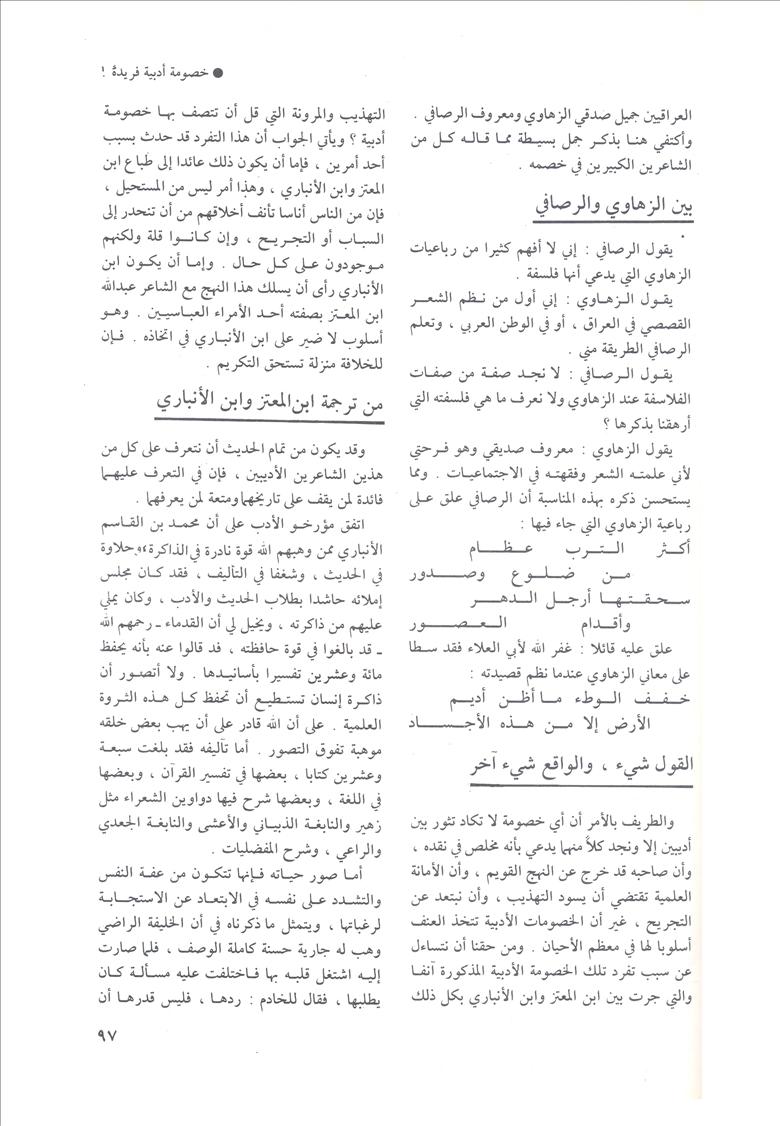 ● خصومة أدبية فريدة !
العراقيين جميل صدقي الزهاوي ومعروف الرصافي .
وأكتفي هنا بذكر جمل بسيطة مما قاله كل من
الشاعرين الكبيرين في خصمه .
بين الزهاوي والرصافي
يقول الرصافي : إني لا أفهم كثيرا من رباعيات
الزهاوي التي يدعي أنها فلسفة .
يقول الزهاوي : إني أول من نظم الشعر
القصصي في العراق ، أو في الوطن العربي ، وتعلم
الرصافي الطريقة مني .
يقول الرصافي : لا نجد صفة من صفات
الفلاسفة عند الزهاوي ولا نعرف ما هي فلسفته التي
أرهقنا بذكرها ؟
يقول الزهاوي : معروف صديقي وهو فرحتي
لأني علمته الشعر وفقهته في الاجتماعيات . ومما
يستحسن ذكره بهذه المناسبة أن الرصافي علق على
رباعية الزهاوي التي جاء فيها :
أكثر الترب عظام
من ضلوع وصدور
سحقتها أرجل الدهر
وأقدام العصور
علق عليه قائلا : غفر الله لأبي العلاء فقد سطا
على معاني الزهاوي عندما نظم قصيدته :
خفف الوطء ما أظن أديم
الأرض إلا من هذه الأجساد
القول شيء ، والواقع شيء آخر
والطريف بالأمر أن أي خصومة لا تكاد تثور بين
أديبين إلا ونجد كلاً منهما يدعي بأنه مخلص في نقده ،
وأن صاحبه قد خرج عن النهج القويم ، وأن الأمانة
العلمية تقتضي أن يسود التهذيب ، وأن نبتعد عن
التجريح ، غير أن الخصومات الأدبية تتخذ العنف
أسلوبا لها في معظم الأحيان . ومن حقنا أن نتساءل
عن سبب تفرد تلك الخصومة الأدبية المذكورة آنفا
والتي جرت بين ابن المعتز وابن الأنباري بكل ذلك
التهذيب والمرونة التي قل أن تتصف بها خصومة
أدبية ؟ ويأتي الجواب أن هذا التفرد قد حدث بسبب
أحد أمرين ، فإما أن يكون ذلك عائدا إلى طباع ابن
المعتز وابن الأنباري ، وهذا أمر ليس من المستحيل ،
فإن من الناس أناسا تأنف أخلاقهم من أن تنحدر إلى
السباب أو التجريح ، وإن كانوا قلة ولكنهم
موجودون على كل حال . وإما أن يكون ابن
الأنباري رأى أن يسلك هذا النهج مع الشاعر عبدالله
ابن المعتز بصفته أحد الأمراء العباسيين . وهو
أسلوب لا ضير على ابن الأنباري في اتخاذه . فإن
للخلافة منزلة تستحق التكريم .
من ترجمة ابن المعتز وابن الأنباري
وقد يكون من تمام الحديث أن نتعرف على كل من
هذين الشاعرين الأديبين ، فإن في التعرف عليهما
فائدة لمن يقف على تاريخهما ومتعة لمن يعرفهما .
اتفق مؤرخو الأدب على أن محمد بن القاسم
الأنباري ممن وهبهم الله قوة نادرة في الذاكرة ، وحلاوة
في الحديث ، وشغفا في التأليف ، فقد كان مجلس
إملائه حاشدا بطلاب الحديث والأدب ، وكان يملي
عليهم من ذاكرته ، ويخيل لي أن القدماء ـ رحمهم الله
ـ قد بالغوا في قوة حافظته ، فد قالوا عنه بأنه يحفظ
مائة وعشرين تفسيرا بأسانيدها . ولا أتصور أن
ذاكرة إنسان تستطيع أن تحفظ كل هذه الثروة
العلمية . على أن الله قادر على أن يهب بعض خلقه
موهبة تفوق التصور . أما تآليفه فقد بلغت سبعة
وعشرين كتابا ، بعضها في تفسير القرآن ، وبعضها
في اللغة ، وبعضها شرح فيها دواوين الشعراء مثل
زهير والنابغة الذبياني والأعشى والنابغة الجعدي
والراعي ، وشرح المفضليات .
أما صور حياته فإنها تتكون من عفة النفس
والتشدد على نفسه في الابتعاد عن الاستجابة
لرغباتها ، ويتمثل ما ذكرناه في أن الخليفة الراضي
وهب له جارية حسنة كاملة الوصف ، فلما صارت
إليه اشتغل قلبه بها فاختلفت عليه مسألة كان
يطلبها ، فقال للخادم : ردها ، فليس قدرها أن
٩٧